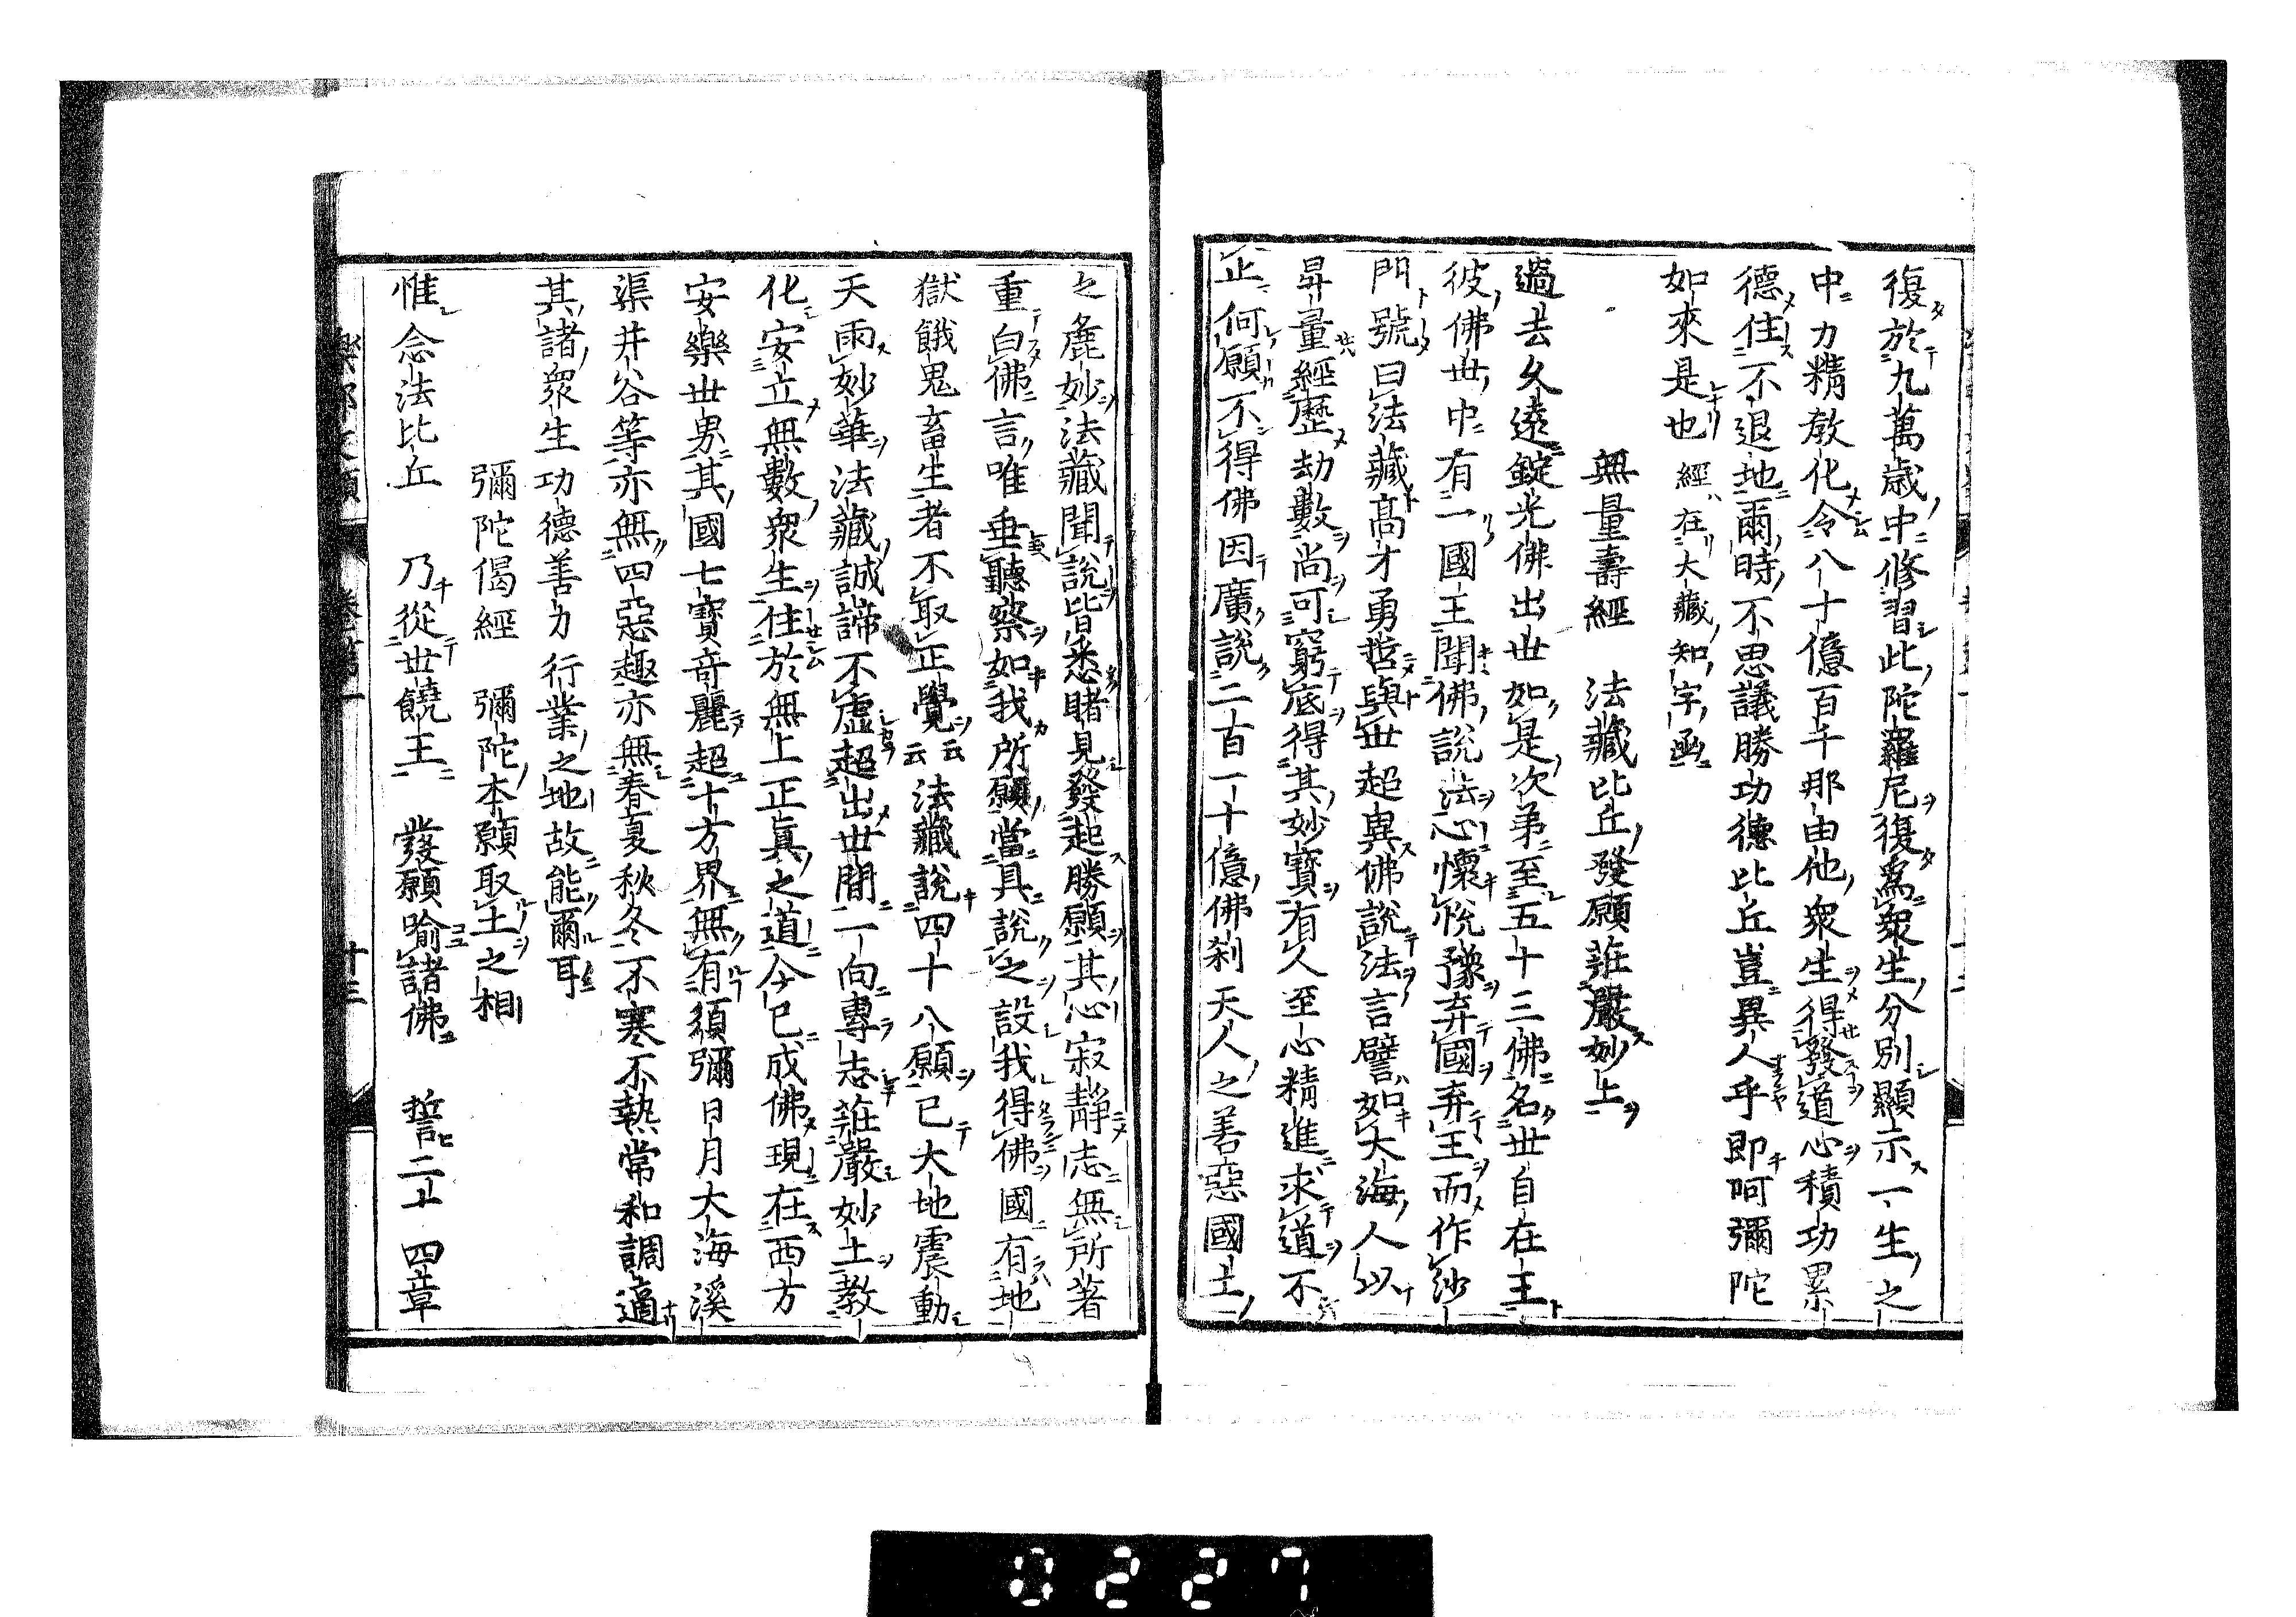 復於九萬歳中修習此陀羅尼復爲衆生分別顯示一生之
中力精教化令八十億百千那由他衆生得發道心積功累
德住不退地爾時不思議勝功德比丘豈異人乎即阿彌陀
如來是也 經在大藏知字函
無量壽經 法藏比丘發願莊嚴妙土
過去久遠錠光佛出世如是次第至五十三佛名世自在王
彼佛世中有一國王聞佛說法心懷悅豫弃國弃王而作沙
門號曰法藏高才勇哲與世超異佛說法言譬如大海人以
昇量經歷劫數尚可窮底得其妙寶有人至心精進求道不
止何願不得佛因廣說二百一十億佛刹天人之善惡國土
之麁妙法藏聞說皆悉睹見發起勝願其心寂靜志無所著
重白佛言唯垂聽察如我所願當具說之設我得佛國有地
獄餓鬼畜生者不取正覺云云法藏說四十八願已大地震動
天雨妙華法藏誠諦不虛超出世間一向專志莊嚴妙土教
化安立無數衆生住於無上正眞之道今已成佛現在西方
安樂世界其國七寶奇麗超十方界無有須彌日月大海溪
渠井谷等亦無四惡趣亦無春夏秋冬不寒不熱常和調適
其諸衆生功德善力行業之地故能爾耳
彌陀偈經 彌陀本願取土之相
惟念法比丘 乃從世饒王 發願喻諸佛 誓二十四章
樂邦文類 卷第一 十三
0227